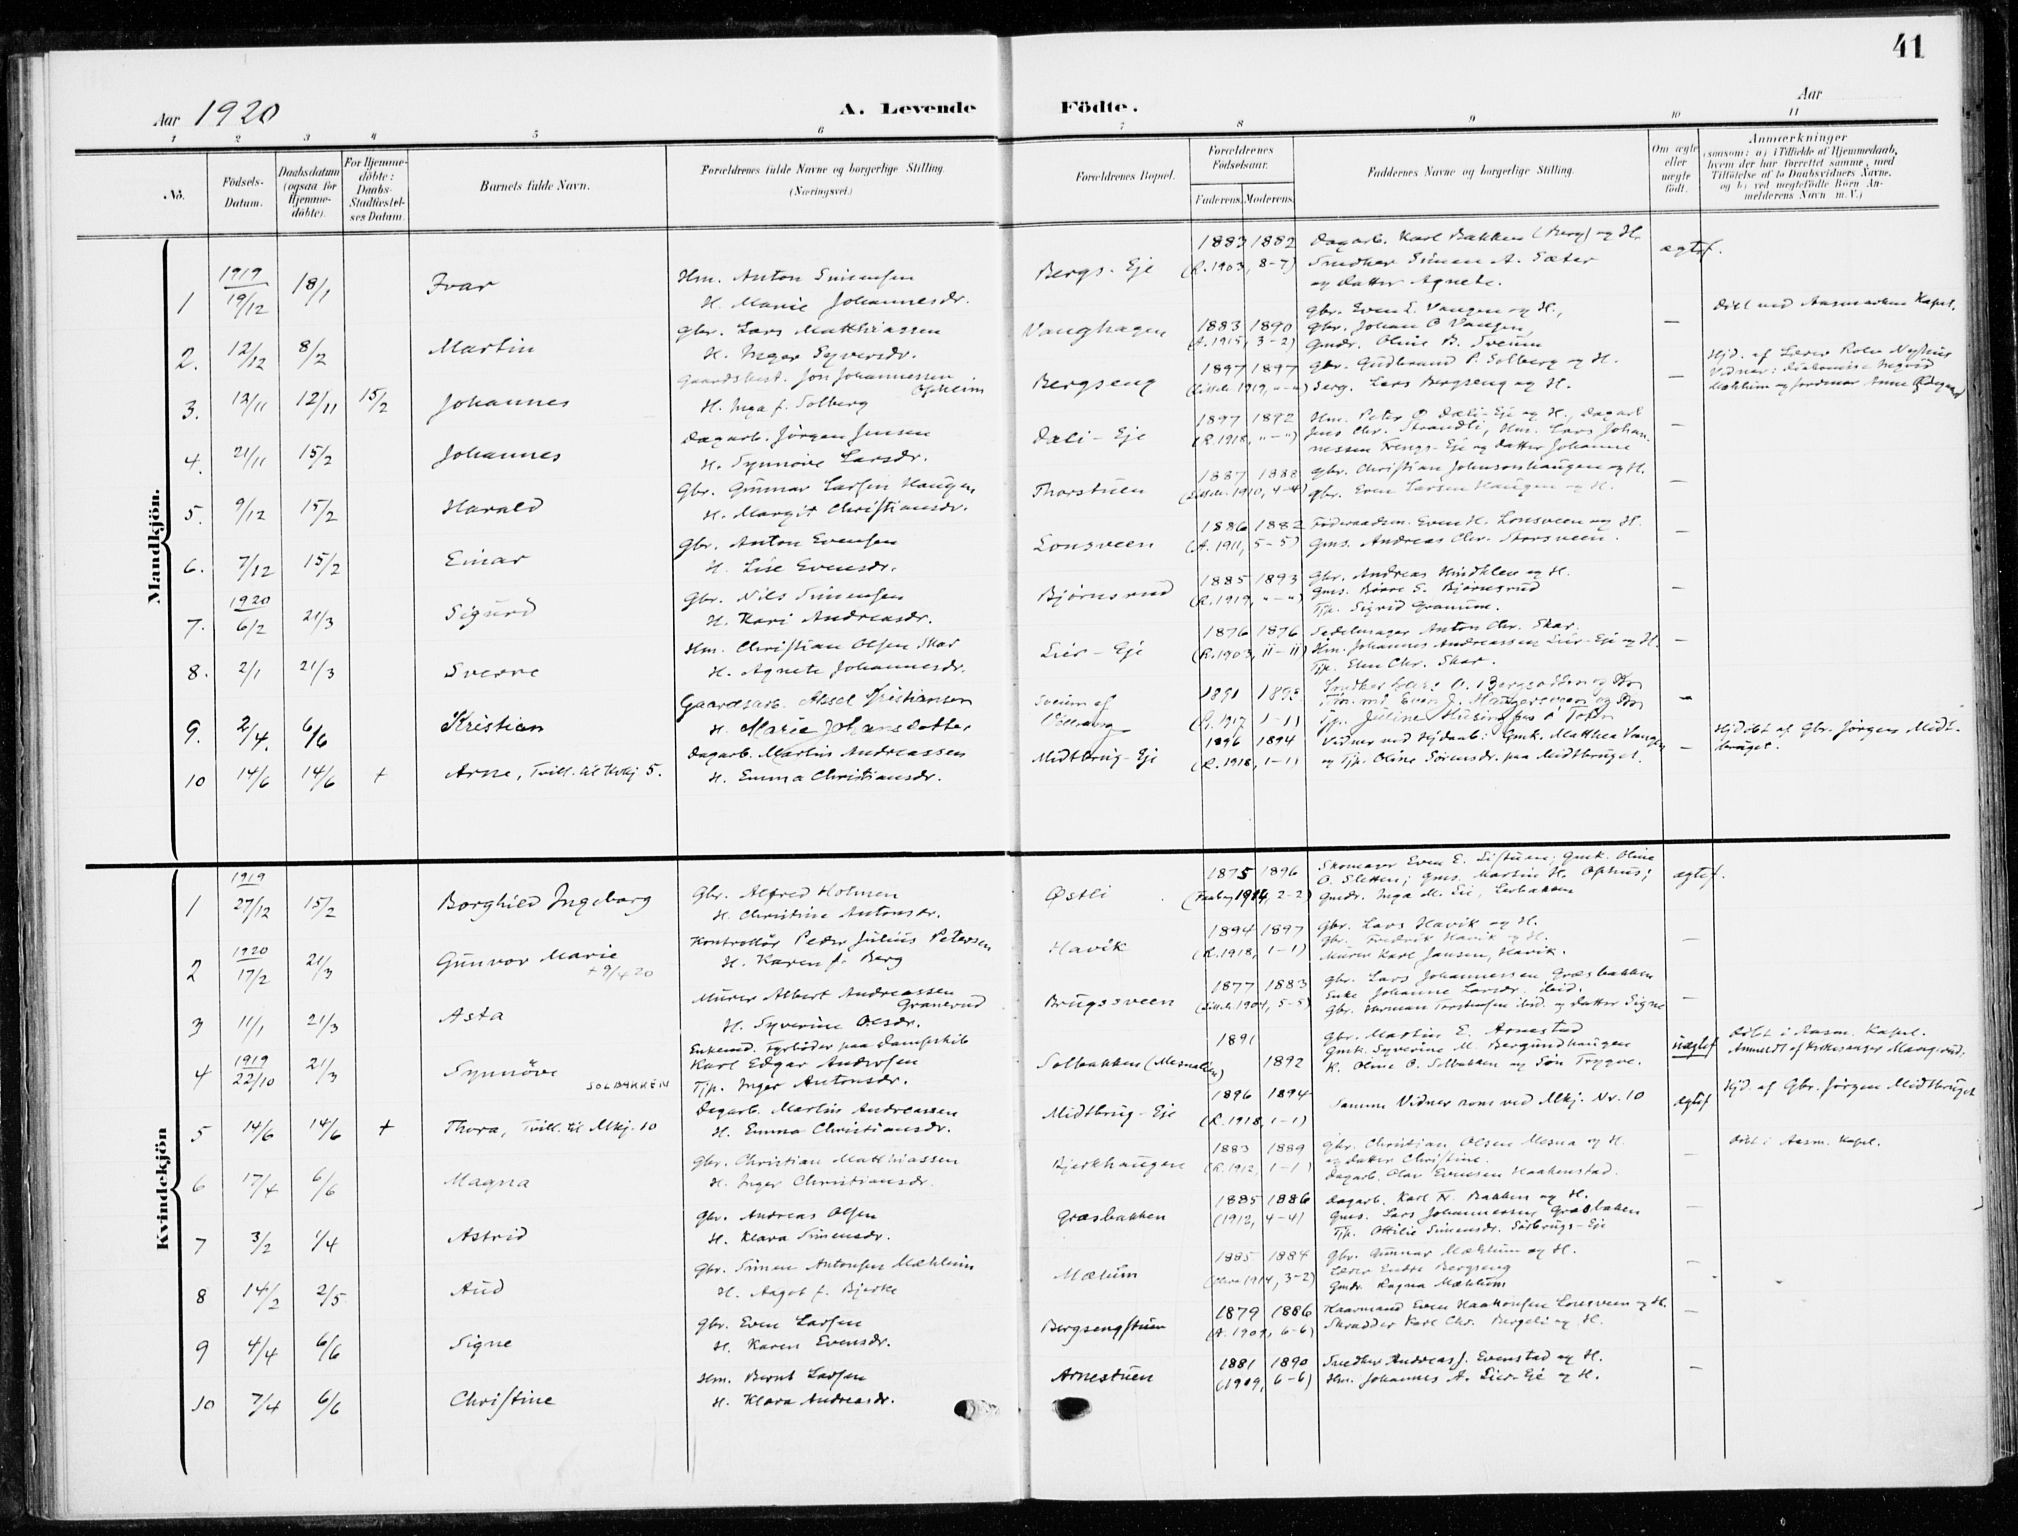 41
Aar 1920
A. Levende Födte.
Aar
1 2 3 4 5 6 7 8 9 10 11
No.
Födsels-Datum.
Daabsdatum (ogsaa för Hjemmedöbte).
For Hjemmedöbte: Daabs-Stadfæstelses Datum.
Barnets fulde Navn.
Forældrenes fulde Navne og borgerlige Stilling.
(Næringsvei.)
Forældrenes Bopæl.
Forældrenes Födselsaar.
Faderens. Moderens.
Faddernes Navne og borgerlige Stilling.
Om ægte eller uægte födt.
Anmærkninger
(saasom: a) i Tilfælde af Hjemmedaab,
hvem der har forrettet samme, med
Tilföielse af to Daabsvidners Navne,
og b) ved uægtefödte Börn An-
melderens Navn m. V.)
Mandkjön.
1 1919 19/12 18/1 Ivar
Hm. Anton Simensen
H. Marie Johannesdr.
Bergs-Eje
1883 1882
(R. 1903, 8-7)
Dagarb. Karl Bakken (Berg) og H.
Snedker Simen A. Sæter
og datter Agnete.
ægtef.
2. 12/12 8/2 Martin
Gbr. Lars Matthiassen
H. Inger Syversdr.
Vanghagen
1883 1890
(A. 1915, 3-2)
Gbr. Even L. Vangen og H.,
Gbr. Johan O Vangen,
Gmdr. Oline B. Sveum
—
Döbt ved Aasmarken Kapel.
3. 12/11 12/11 15/2 Johannes
Gaardsbest. Jon Johannessen Opheim
H. Inga f. Solberg
Bergseng
1897 1897
Gbr. Gudbrand P. Solberg og H.
Serg. Lars Bergseng og H.
—
Hjd. af Lærer Rolv Nyhus
Vidner: Diakonisse Ingrid
Mæhlum og Jordmor Anne Ødegaard
4. 21/11 15/2 Johannes
Dagarb. Jørgen Jensen
H. Synnöve Larsdr.
Dæli-Eje
1897 1892
(R. 1918, "-")
Hm. Peter O Dæli-Eje og H., Dagarb
Jens Chr. Strandli, Hm. Lars Johan-
nessen Frengs-Eje og datter Johanne
—
5. 9/12 15/2 Harald
Gbr. Gunnar Larsen Haugen
H. Margit Christiansdr.
Thorstuen
1887 1888
Gbr. Christian Johnsonhaugen og H.
Gbr. Even Larsen Haugen og H.
—
6. 7/12 15/2 Einar
Gbr. Anton Evensen
H. Lise Evensdr.
Lonsveen
1886 1882
(A. 1911, 5-5)
Föderaadsm. Even H. Lonsveen og H.
Gms. Andreas Chr. Storsveen.
—
7. 1920 6/2 21/3 Sigurd
Gbr. Nils Simensen
H. Kari Andreasdr.
Bjørnsrud
1885 1893
(R. 1919, "-")
Gbr. Andreas Hindklev og H.
Gms. Börre S. Bjørnsrud
Tjp. Sigrid Granum.
—
8. 2/1 21/3 Sverre
Hm. Christian Olsen Skar
H. Agnete Johannesdr.
Lier-Eje
1876 1876
(R. 1903, 11-11)
Sadelmager Anton Chr. Skar.
Hm. Johannes Andreassen Lier-Eje og H.
Tjp. Elen Chr. Skar.
—
9. 2/4. 6/6 Kristian
Gaardsarb. Aksel Kristiansen
H. Marie J. Hansdatter
Sveum af
1891 1893
(G. 1917 1-1)
—
10 14/6 14/6 + Arne, Tvill. til Kvkj 5.
Dagarb. Martin Andreassen
H. Emma Christiansdr.
Midtbrug-Eje
1896 1894
(R. 1918, 1-1)
Vidner ved Hjdaab: Gmk. Matthea Vangen
og Tjp. Oline Sörensdr. paa Midtbruget.
—
Hjdöbt af Gbr. Jørgen Midt-
bruget.
Kvindekjön
1 1919 27/12 15/2 Borghild Ingeborg
Gbr. Alfred Holmen
H. Christine Antonsdr.
Østli
1875 1896
(Faaberg 1914, 2-2)
Skomager Even E. Listuen; Gmk. Oline
O. Sletten; Gms. Martin H. Ophus;
Gmdr. Inga M. Lie, Lerbakken
ægtef.
2 1920 17/2 21/3 Gunvor Marie
+ 9/4 20
Kontrollör Peder Julius Petersen
H. Karen f. Berg
Havik
1894 1897
(R. 1918, 1-1)
Gbr. Lars Havik og H.
Gbr. Fredrik Havik og H.
Murer Karl Jansen, Havik.
—
3 11/1 21/3 Asta
Murer Albert Andreassen Granerud
H. Syverine Olsdr.
Brugssveen
1877 1883
Gbr. Lars Johannessen Græsbakken
Enke Johanne Larsdr. ibid.
Gbr. Herman Torstensen ibid. og datter Signe
—
4 1919 22/10 21/3 Synnöve
SOLBAKKEN
Enkemd. Fyrböder paa Dampskib
Karl Edgar Andersen
Tjp. Inger Antonsdr.
Solbakken (Mesnalien)
1891
1892
Gbr. Martin E. Arnestad
Gmk. Syverine M. Bergundhaugen
K. Oline O. Solbakken og Sön Trygve.
uægtef
Döbt i Aasm. Kapel.
Anmeldt af Kirkesanger Mangerud.
5 14/6 14/6 + Thora, Tvill. til Mkj. 10
Dagarb. Martin Andreassen
H. Emma Christiansdr.
Midtbrug-Eje
1896 1894
(R. 1918, 1-1)
Samme Vidner som ved Mkj. Nr. 10
ægtef
Hjd. af Gbr. Jørgen Midtbruget
6 17/4 6/6 Magna
Gbr. Christian Matthiassen
H. Inger Christiansdr.
Bjerkhaugen
1883 1889
(R. 1912, 1-1)
Gbr. Christian Olsen Mesna og H.
og datter Christine.
Dagarb. Olav Evensen Haakenstad.
—
Döbt i Aasm. Kapel.
7 3/2 1/4 Astrid
Gbr. Andreas Olsen
H. Klara Simensdr.
Græsbakken
1885 1886
(1912, 4-4)
Dagarb. Karl Fr. Bakken og H.
Gms. Lars Johannessen Græsbakken
Tjp. Ottilie Simensdr. Sörbrugs-Eje
—
8 14/2 2/5 Aud
Gbr. Simen Antonsen Mæhlum
H. Aagot f. Bjerke
Mælum
1885 1884
Gbr. Gunnar Mæhlum og H.
Lærer Endre Bergseng
Gmdr. Ragna Mæhlum
—
9 4/4 6/6 Signe
Gbr. Even Larsen
H. Karen Evensdr.
Bergsengstuen
1879 1886
(A. 1909, 6-6)
Kaarmand Even Haakonsen Lonsveen og H.
Skrædder Karl Chr. Bergeli og H.
—
10 7/4 6/6 Christine
Hm. Bernt Larsen
H. Klara Andreasdr.
Arnestuen
1881 1890
(1909, 6-6)
Snedker Andreas J. Evenstad og H.
Hm. Johannes A. Lier-Eje og H.
—